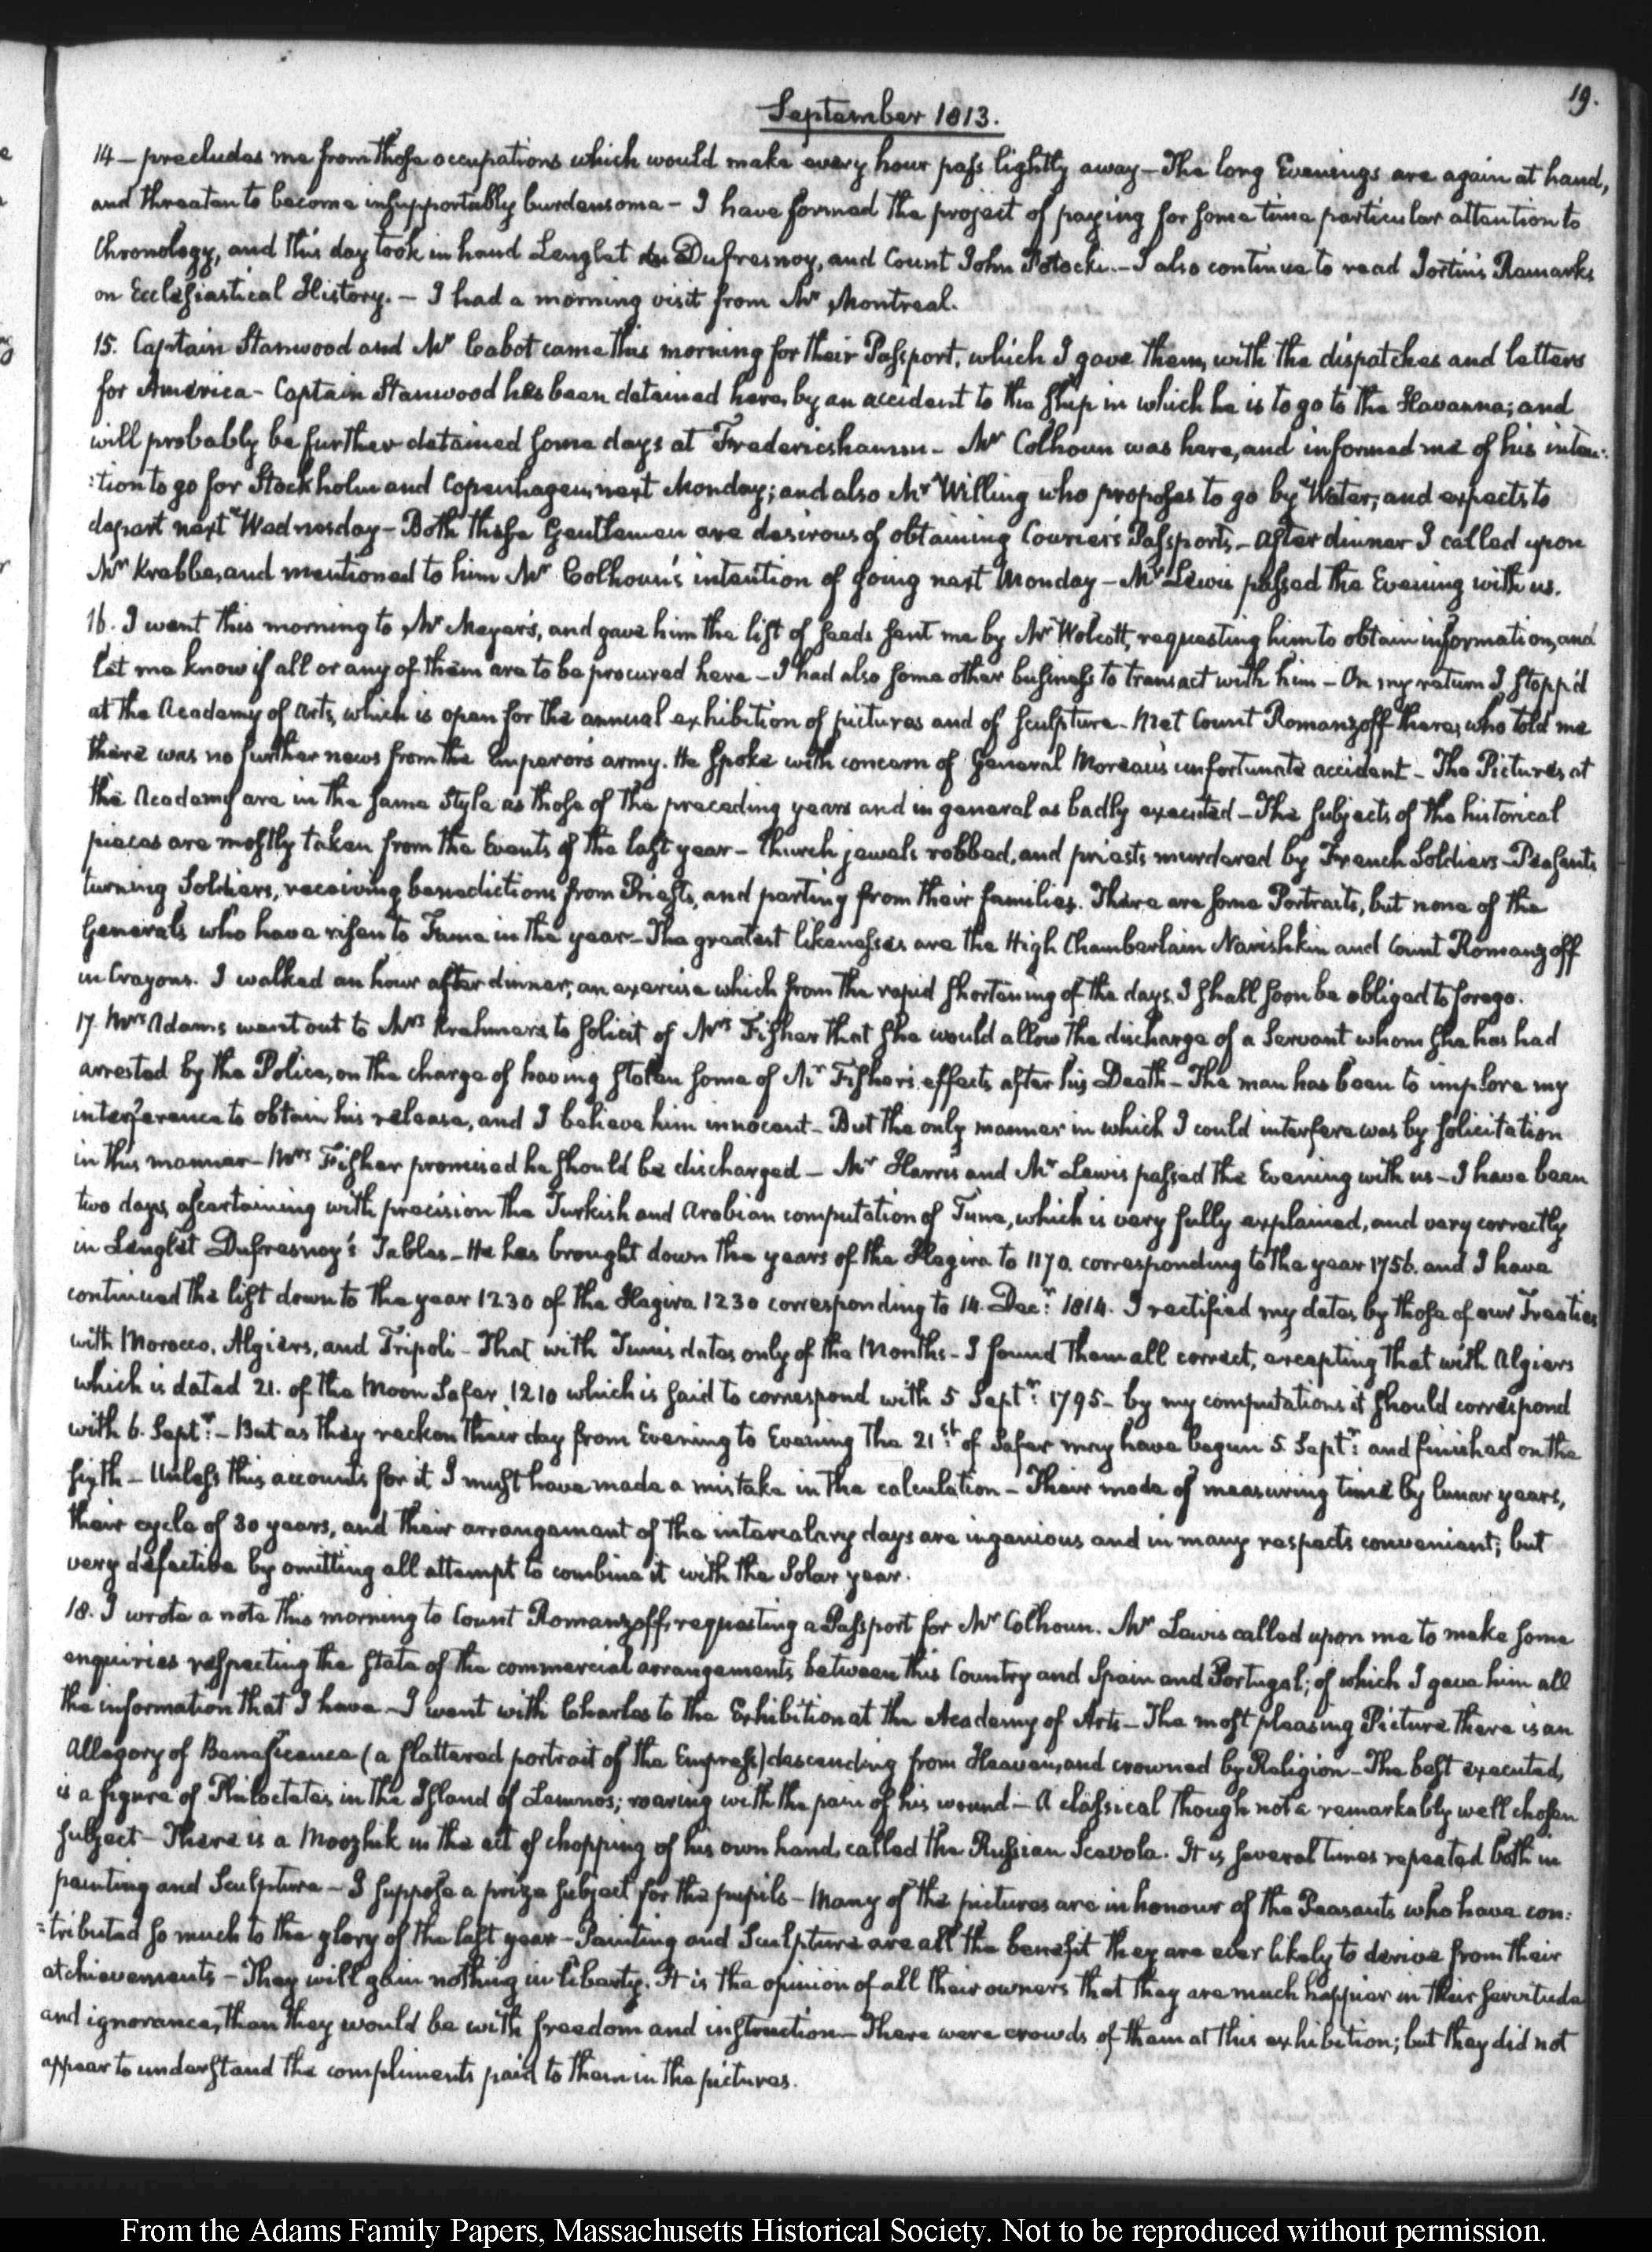 19.
September 1813.
14 – precludes me from those occupations which would make every hour pass lightly away – The long Evenings are again at hand,
and threaten to become insupportably burdensome – I have formed the project of paying for some time particular attention to
Chronology, and this day took in hand Lenglet du Dufresnoy, and Count John Potocki. – I also continue to read Jortin's Remarks
on Ecclesiastical History. – I had a morning visit from Mr Montreal.
15. Captain Stanwood and Mr Cabot came this morning for their Passport, which I gave them, with the dispatches and letters
for America – Captain Stanwood has been detained here, by an accident to the ship in which he is to go to the Havanna; and
will probably be further detained some days at Fredericshamm – Mr Colhoun was here, and informed me of his inten:
:tion to go for Stockholm and Copenhagen, next Monday; and also Mr Willing who proposes to go by Water, and expects to
depart next Wednesday – Both these Gentlemen are desirous of obtaining Courier's Passports – After dinner I called upon
Mr Krabbe, and mentioned to him Mr Colhoun's intention of going next Monday – Mr Lewis passed the Evening with us.
16. I went this morning to Mr Meyer's, and gave him the list of seeds sent me by Mr Wolcott, requesting him to obtain information, and
let me know if all or any of them are to be procured here – I had also some other business to transact with him – On my return I stopp'd
at the Academy of Arts, which is open for the annual exhibition of pictures and of sculpture – Met Count Romanzoff there, who told me
there was no further news from the Emperor's army. He spoke with concern of General Moreau's unfortunate accident – The Pictures at
the Academy are in the same style as those of the preceding years and in general as badly executed – The subjects of the historical
pieces are mostly taken from the Events of the last year – Church jewels robbed, and priests murdered by French Soldiers – Peasants
turning Soldiers, receiving benedictions from Priests, and parting from their families. There are some Portraits, but none of the
Generals who have risen to Fame in the year – The greatest likenesses are the High Chamberlain Narishkin and Count Romanzoff
in Crayons. I walked an hour after dinner; an exercise which from the rapid shortening of the days, I shall soon be obliged to forego.
17. Mrs Adams went out to Mrs Krehmer's to solicit of Mrs Fisher that she would allow the discharge of a Servant whom she has had
arrested by the Police, on the charge of having stolen some of Mr Fisher's effects after his Death – The man has been to implore my
interference to obtain his release, and I believe him innocent – But the only manner in which I could interfere was by solicitation
in this manner – Mrs Fisher promised he should be discharged – Mr Harris and Mr Lewis passed the Evening with us – I have been
two days, ascertaining with precision the Turkish and Arabian computation of Time, which is very fully explained, and very correctly
in Lenglet Dufresnoy's Tables – He has brought down the years of the Hegira to 1170. corresponding to the year 1756. and I have
continued the list down to the year 1230 of the Hegira 1230 corresponding to 14. Decr: 1814. I rectified my dates by those of our Treaties
with Morocco, Algiers, and Tripoli – That with Tunis dates only of the Months – I found them all correct, excepting that with Algiers
which is dated 21. of the Moon Safar, 1210 which is said to correspond with 5 Septr: 1795 – by my computations it should correspond
with 6. Septr: – But as they reckon their day from Evening to Evening The 21st: of Safar may have begun 5. Septr: and finished on the
sixth – Unless this accounts for it I must have made a mistake in the calculation – Their mode of measuring time by lunar years,
their cycle of 30 years, and their arrangement of the intercalary days are ingenious and in many respects convenient; but
very defective by omitting all attempt to combine it with the Solar year.
18. I wrote a note this morning to Count Romanzoff, requesting a Passport for Mr Colhoun. Mr Lewis called upon me to make some
enquiries respecting the state of the commercial arrangements between this Country and Spain and Portugal; of which I gave him all
the information that I have – I went with Charles to the Exhibition at the Academy of Arts – The most pleasing Picture there is an
Allegory of Beneficence (a flattered portrait of the Empress) descending from Heaven, and crowned by Religion – The best executed,
is a figure of Philoctetes in the Island of Lemnos; roaring with the pain of his wound – A classical though not a remarkably well chosen
subject – There is a Moozhik in the act of chopping of his own hand, called the Russian Scevola. It is several times repeated both in
painting and Sculpture – I suppose a prize subject for the pupils – Many of the pictures are in honour of the Peasants who have con:
:tributed so much to the glory of the last year – Painting and Sculpture are all the benefit they are ever likely to derive from their
atchievements – They will gain nothing in liberty. It is the opinion of all their owners that they are much happier in their servitude
and ignorance, than they would be with freedom and instruction – There were crowds of them at this exhibition; but they did not
appear to understand the compliments paid to them in the pictures.
From the Adams Family Papers, Massachusetts Historical Society. Not to be reproduced without permission.